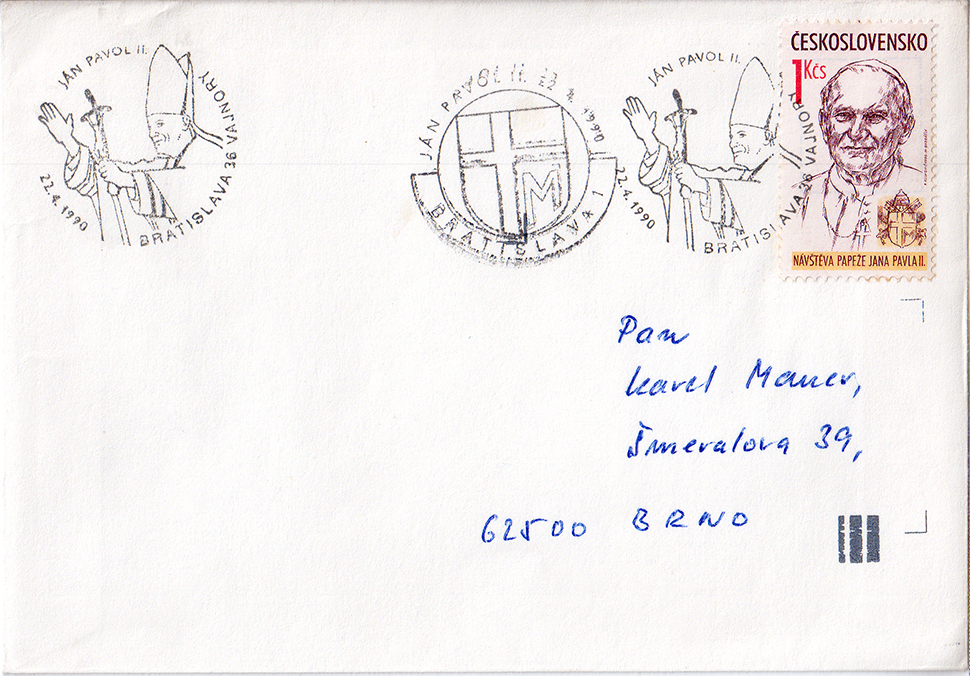 JÁN PAVOL II.
22.4.1990
BRATISLAVA 36 VAJNORY
JÁN PAVOL II. 22. 4. 1990
BRATISLAVA 1
M
JÁN PAVOL II.
22.4.1990
BRATISLAVA 26 VAJNORY
ČESKOSLOVENSKO
1 Kčs
NÁVŠTĚVA PAPEŽE JANA PAVLA II.
Pan
Karel Mauer,
Šmeralova 39,
62500 BRNO